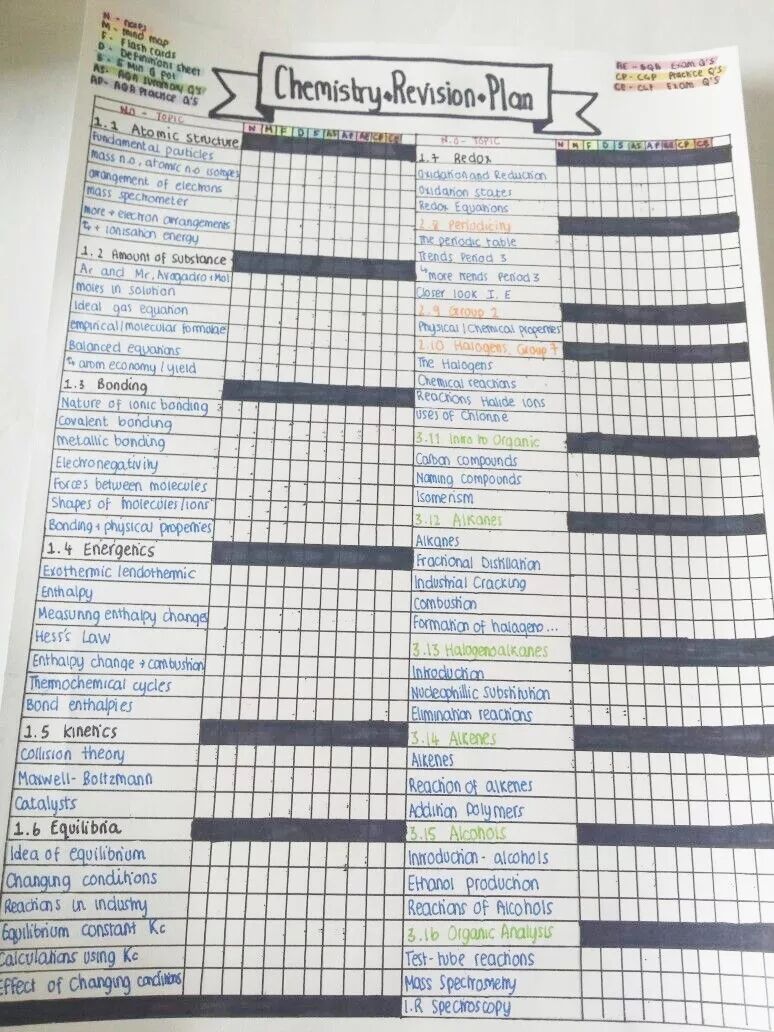 N - notes
M - mind map
F - Flash cards
D - Definitions sheet
5 - 5 Min Q Pot
AS - AQA Summary Q's
AP - AQA Practice Q's
Chemistry • Revision • Plan
AE - AQA Exam Q's
CP - CGP Practice Q's
CE - CGP Exam Q's
N.O - TOPIC
N M F D 5 AS AP AE CP CE
1.1 Atomic structure
Fundamental particles
mass n.o, atomic n.o isotopes
arrangement of electrons
mass spectometer
more + electron arrangements
↳ + ionisation energy
1.2 Amount of substance
Ar and Mr, Avogadro + Mol
moles in solution
Ideal gas equation
empirical/molecular formulae
Balanced equations
↳ atom economy / yield
1.3 Bonding
Nature of ionic bonding
Covalent bonding
metallic bonding
Electronegativity
Forces between molecules
Shapes of molecules/ions
Bonding + physical properties
1.4 Energetics
Exothermic /endothermic
Enthalpy
Measuring enthalpy changes
Hess's Law
Enthalpy change + combustion
Thermochemical cycles
Bond enthalpies
1.5 kinetics
Collision theory
Maxwell- Boltzmann
Catalysts
1.6 Equilibria
Idea of equilibrium
Changing conditions
Reactions in industry
Equilibrium constant Kc
Calculations using Kc
Effect of Changing conditions
N.O - TOPIC
N M F D 5 AS AP AE CP CE
1.7 Redox
Oxidation and Reduction
Oxidation states
Redox Equations
2.8 Periodicity
The periodic table
Trends Period 3
↳ more trends Period 3
Closer look I.E
2.9 Group 2
Physical / Chemical properties
2.10 Halogens, Group 7
The Halogens
Chemical reactions
Reactions Halide ions
uses of Chlorine
3.11 Intro to Organic
Carbon compounds
Naming compounds
Isomerism
3.12 Alkanes
Alkanes
Fractional Distillation
Industrial Cracking
Combustion
Formation of halogeno...
3.13 Halogenoalkanes
Introduction
Nucleophillic Substitution
Elimination reactions
3.14 Alkenes
Alkenes
Reaction of alkenes
Addition polymers
3.15 Alcohols
Introduction - alcohols
Ethanol production
Reactions of Alcohols
3.16 Organic Analysis
Test-tube reactions
Mass Spectrometry
I.R Spectroscopy